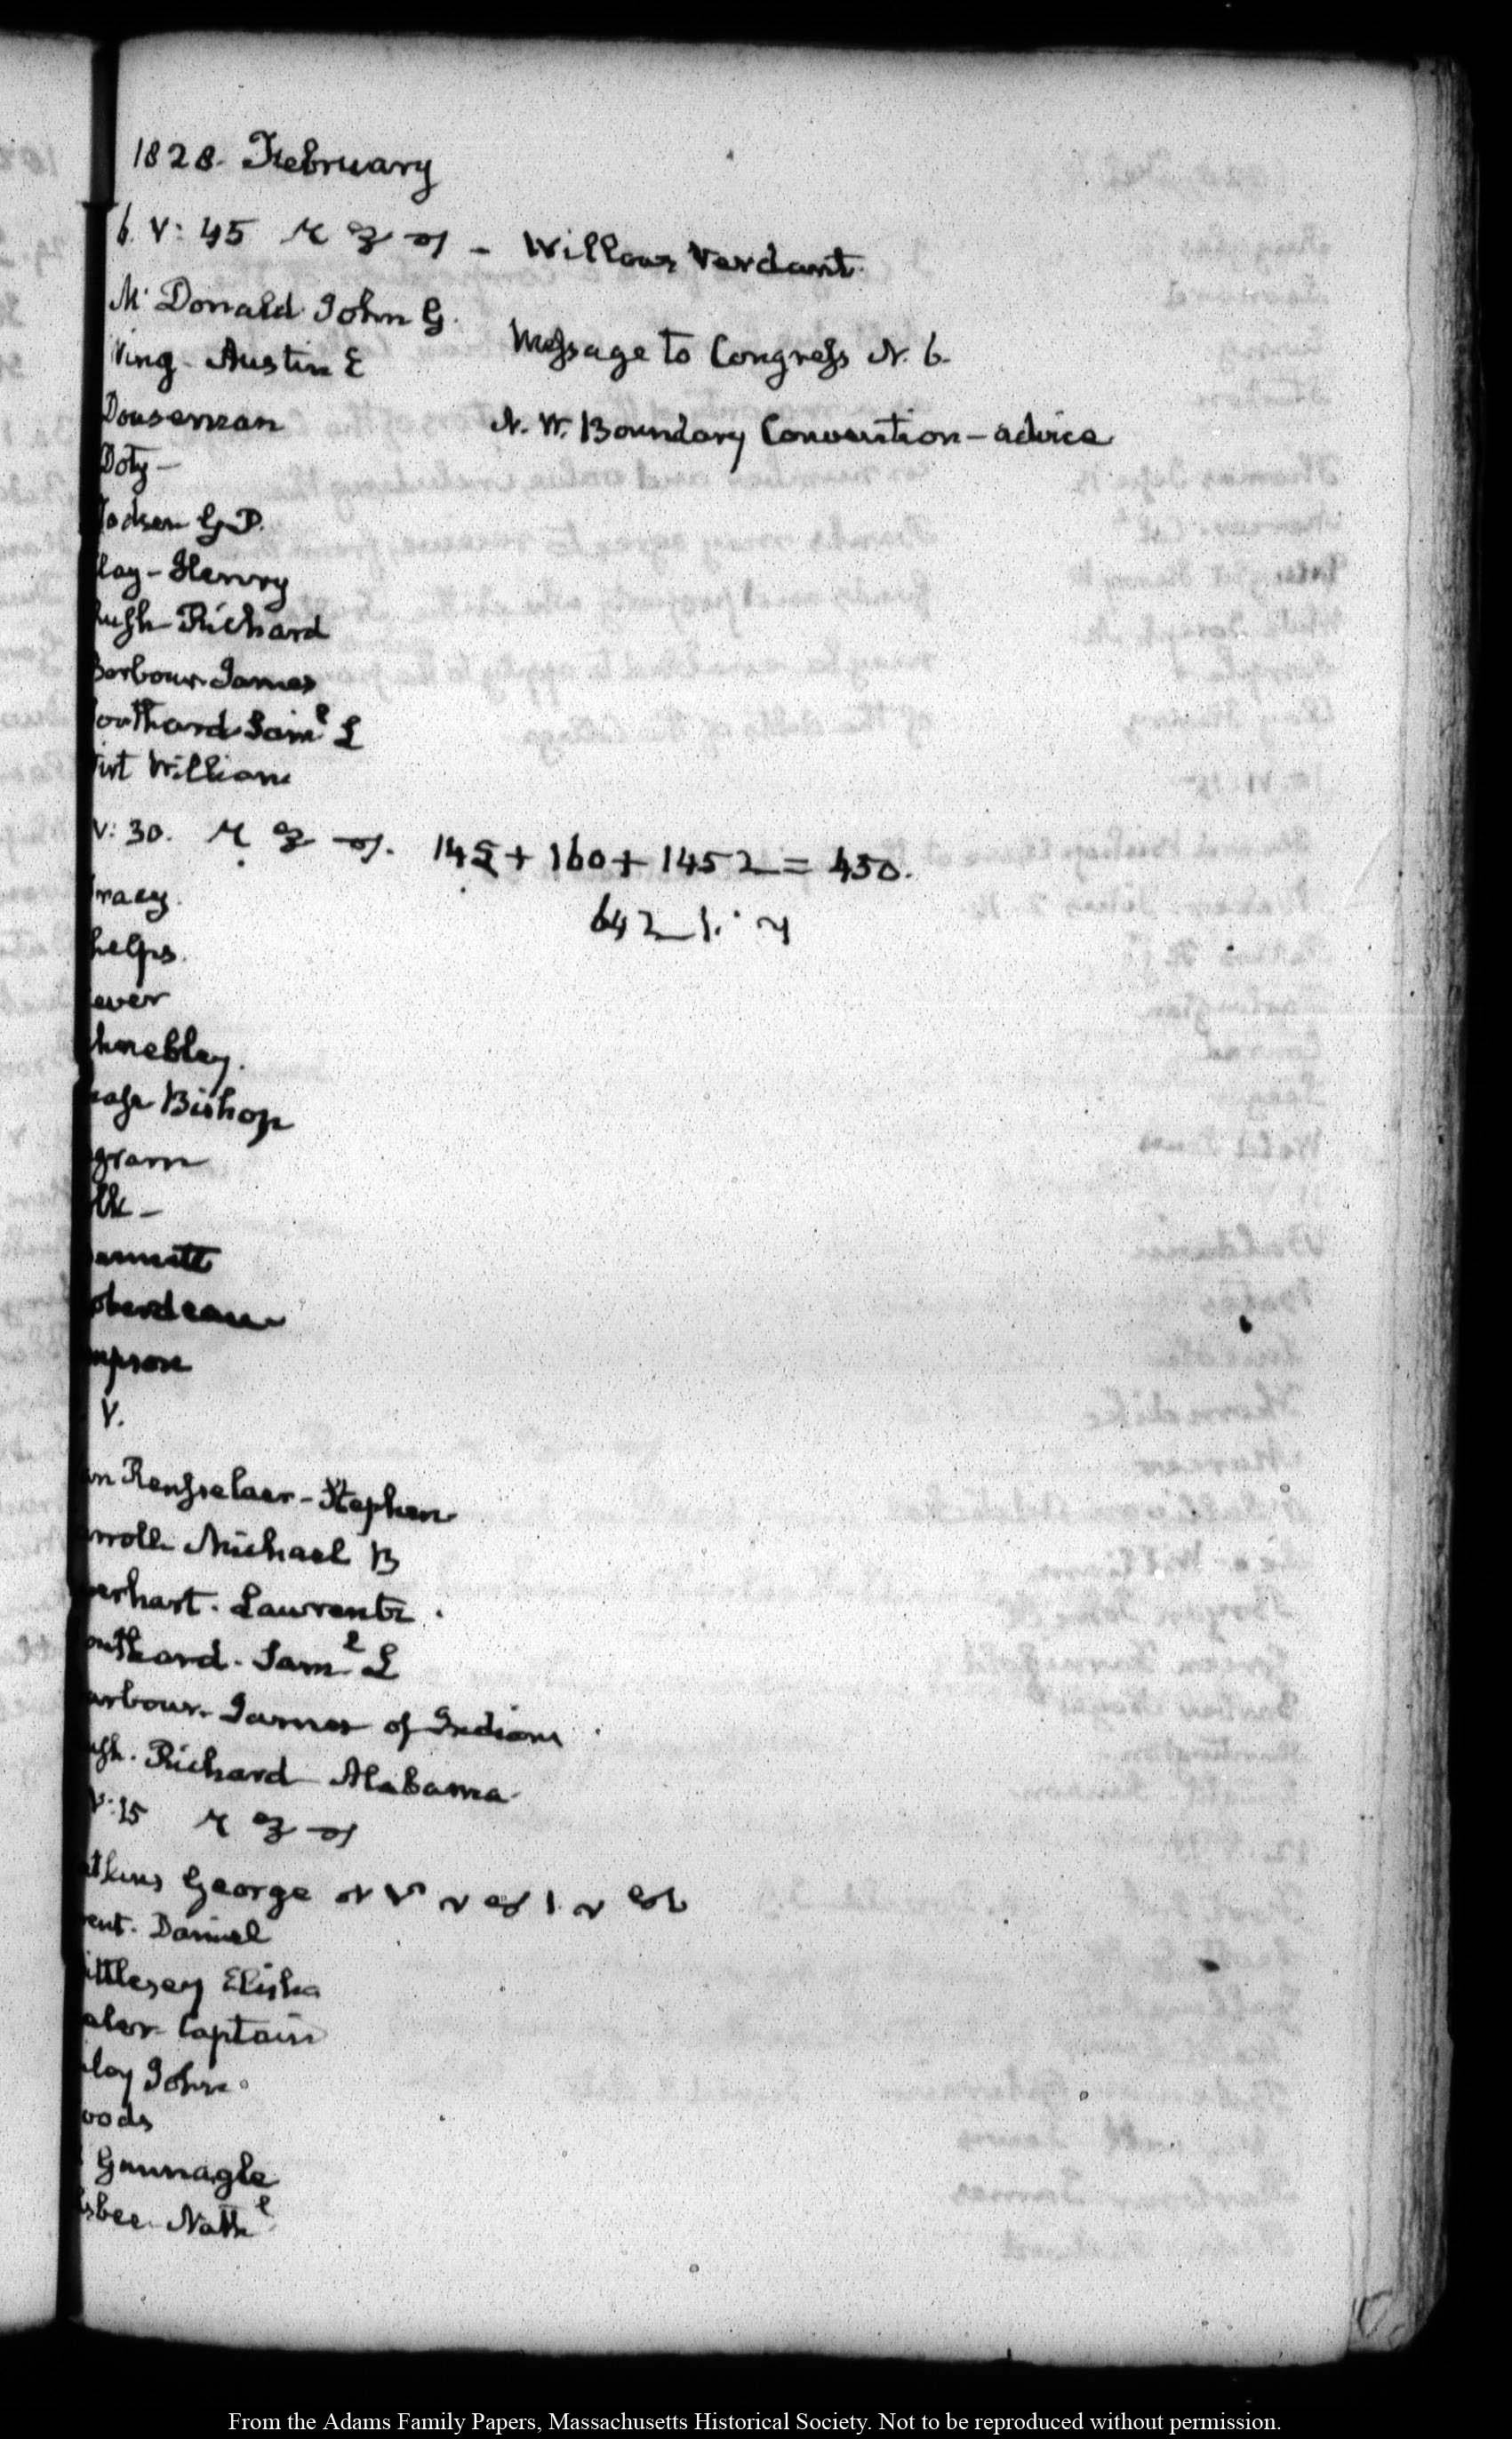 1828. February
6. V: 45 - Willows Verdant.
Mc Donald John G.
Wing - Austin E
Message to Congress N. 6.
Douseman
N. W. Boundary Convention - advice
Doty -
G. D.
lay - Henry
ush Richard
Barbour James
outhard Saml L
irt William
V: 30. 145 + 160 + 1452 = 450.
racy.
642
helps.
ever
hnebley.
hase Bishop
gram
olk -
ennett
oberdeau
mpson
V.
an Rensselaer - Stephen
rroll Michael B
verhart. Lawrence.
outhard. Saml L
arbour. James of Indiana
ush. Richard Alabama
V: 15
atkins George
rent. Daniel
ittlesey Elisha
Captain
lay John.
oods
Gunnagle
lsbee Nathl
From the Adams Family Papers, Massachusetts Historical Society. Not to be reproduced without permission.